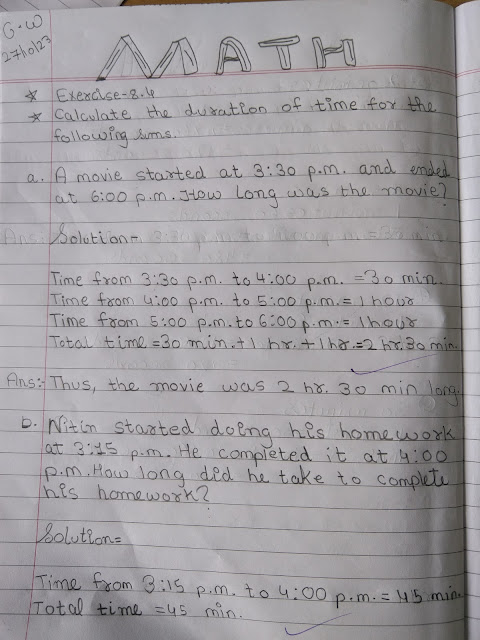 C.W
27/10/23
MATH
* Exercise-8.4
* Calculate the duration of time for the
following sums.
a. A movie started at 3:30 p.m. and ended
at 6:00 p.m. How long was the movie?
Solution=
Time from 3:30 p.m. to 4:00 p.m. =30 min.
Time from 4:00 p.m. to 5:00 p.m.= 1 hour
Time from 5:00 p.m. to 6:00 p.m.= 1 hour
Total time =30 min.+1 hr.+1hr.=2 hr.30 min.
Ans:- Thus, the movie was 2 hr. 30 min long.
b. Nitin started doing his homework
at 3:15 p.m. He completed it at 4:00
p.m. How long did he take to complete
his homework?
Solution=
Time from 3:15 p.m. to 4:00 p.m. = 45 min.
Total time =45 min.